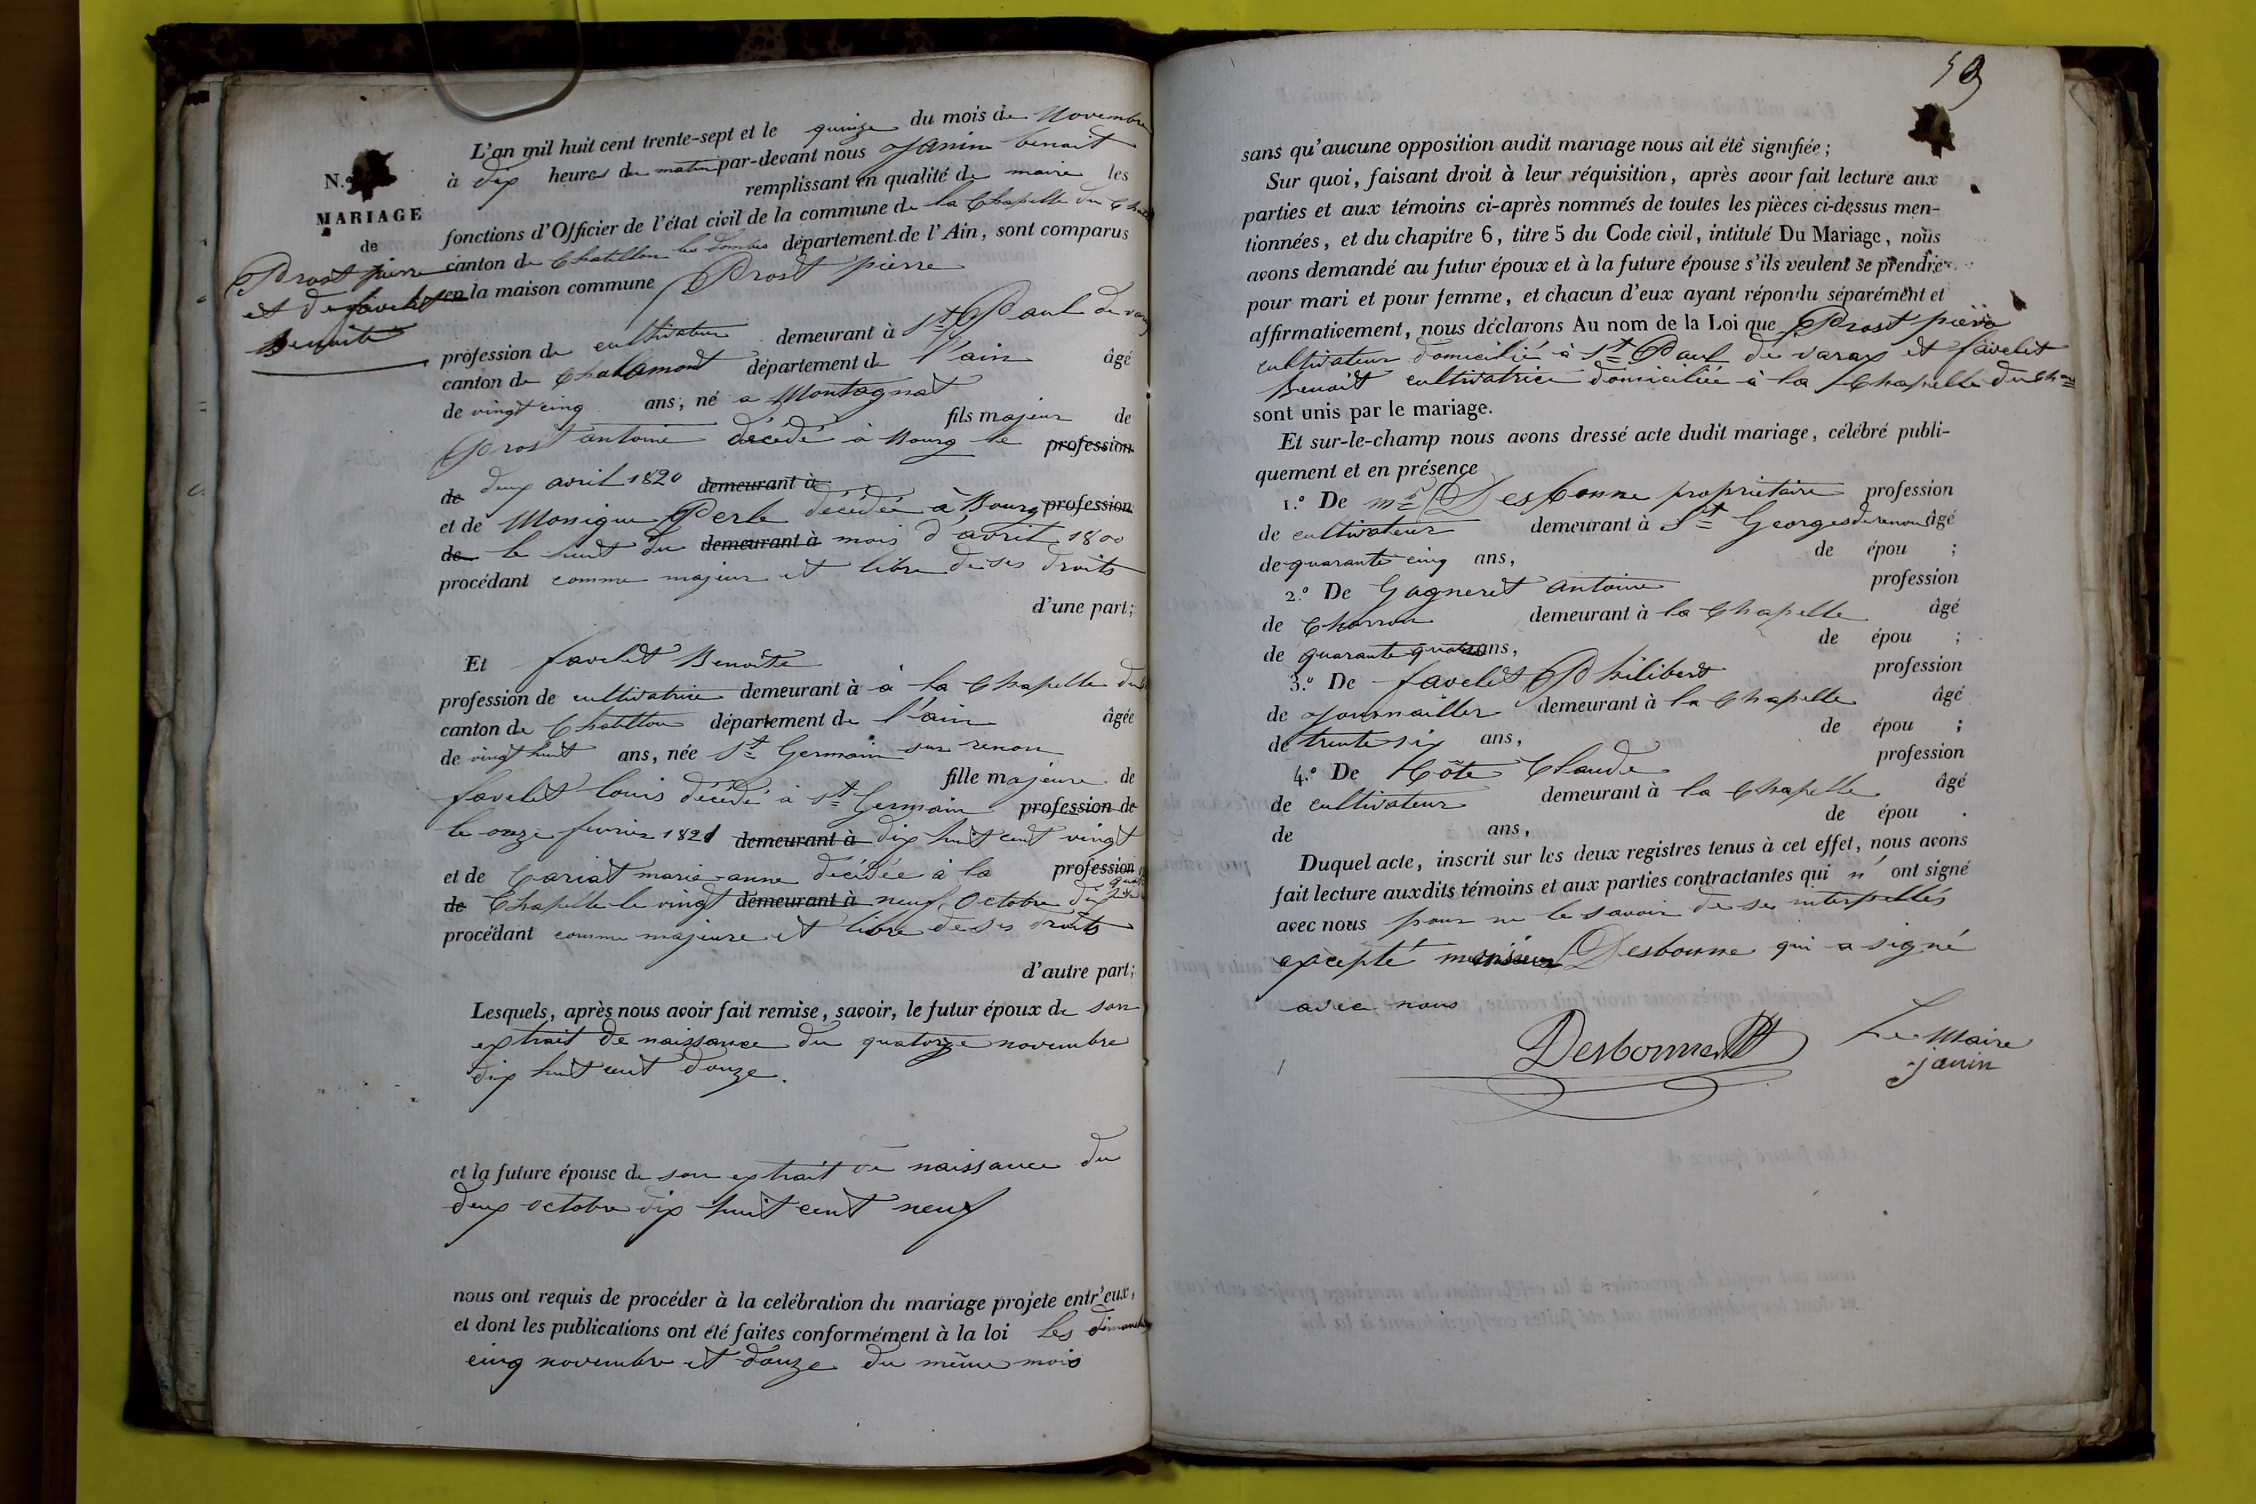 N.o
MARIAGE
de
Prost pierre
et de favelet
Benoite
L'an mil huit cent trente-sept et le quinze du mois de Novembre
à dix heures du matin par-devant nous Janin benoit
remplissant en qualité de maire les
fonctions d'Officier de l'état civil de la commune de la Chapelle du
canton de Chatillon les dombes département de l'Ain, sont comparus
en la maison commune Prost pierre
profession de cultivateur demeurant à St Paul de
canton de Chalamont département de l'ain âgé
de vingt cinq ans, né a Montagnat
fils majeur de
Prost antoine décédé à Bourg le profession
de deux avril 1820 demeurant à
et de Monique Perle décédée à Bourg profession
de le huit du demeurant à mois d'avril 1800
procédant comme majeur et libre de ses droits
d'une part;
Et favelet Benoite
profession de cultivatrice demeurant à à la Chapelle du
canton de Chatillon département de l'ain âgée
de vingt huit ans, née St Germain sur renon
fille majeure de
favelet louis décédé à St Germain profession de
le onze fevrier 1821 demeurant à dix huit cent vingt
et de Cariat marie-anne décédée à la profession
de Chapelle le vingt demeurant à neuf Octobre dix
procédant comme majeure et libre de ses droits
d'autre part;
Lesquels, après nous avoir fait remise, savoir, le futur époux de son
extrait de naissance du quatorze novembre
dix huit cent douze.
et la future épouse de son extrait de naissance du
deux octobre dix huit cent neuf
nous ont requis de procéder à la celébration du mariage projeté entr'eux,
et dont les publications ont été faites conformément à la loi les dimanches
cinq novembre et douze du même mois
59
sans qu'aucune opposition audit mariage nous ait été signifiée;
Sur quoi, faisant droit à leur réquisition, après avoir fait lecture aux
parties et aux témoins ci-après nommés de toutes les pièces ci-dessus men-
tionnées, et du chapitre 6, titre 5 du Code civil, intitulé Du Mariage, nous
avons demandé au futur époux et à la future épouse s'ils veulent se prendre
pour mari et pour femme, et chacun d'eux ayant répondu séparément et
affirmativement, nous déclarons Au nom de la Loi que Prost pierre
cultivateur domicilié à St Paul de varax et favelet
Benoit cultivatrice domiciliée à la Chapelle du
sont unis par le mariage.
Et sur-le-champ nous avons dressé acte dudit mariage, célébré publi-
quement et en présence
1.o De mr Desbonne propriétaire profession
de cultivateur demeurant à St Georges de renon âgé
de quarante cinq ans, de épou ;
2.o De Gagneret antoine profession
de Charron demeurant à la Chapelle âgé
de quarante quatre ans, de épou ;
3.o De favelet Philibert profession
de Journailler demeurant à la Chapelle âgé
de trente six ans, de épou ;
4.o De Hôte Claude profession
de cultivateur demeurant à la Chapelle âgé
de ans, de épou .
Duquel acte, inscrit sur les deux registres tenus à cet effet, nous avons
fait lecture auxdits témoins et aux parties contractantes qui n' ont signé
avec nous pour ne le savoir de ses interpellés
excepté monsieur Desbonne qui a signé
avec nous
Desbonne Le Maire
janin